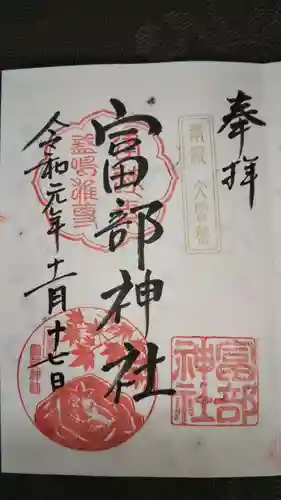 奉拝
富部神社
令和元年十一月十七日
富部
神社